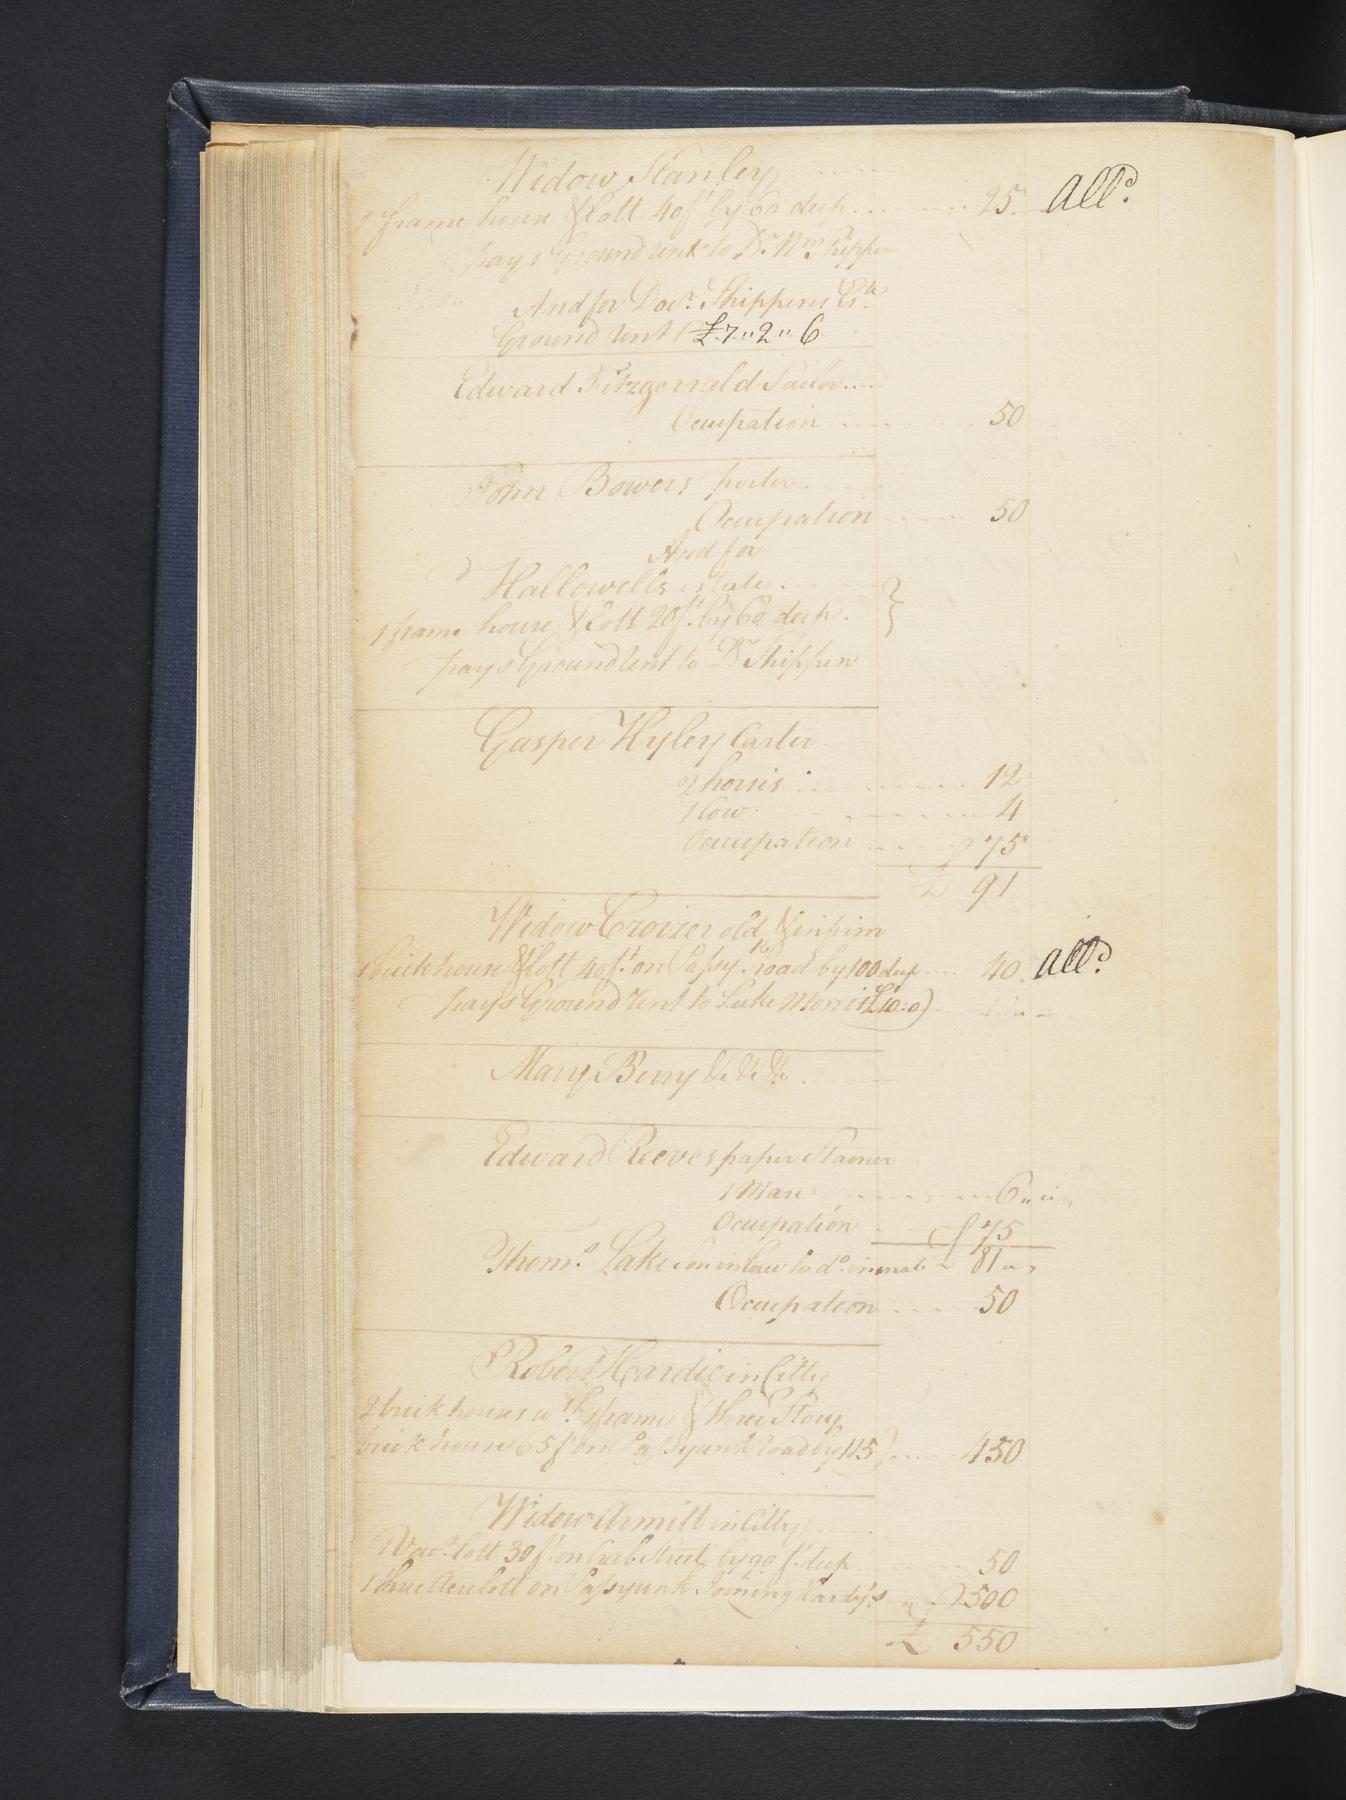 Widow Stanley
1 frame house & lott 40 ft by 60 deep 25. All^d.
pays Ground rent to D^r. W^m. Shippen
And for Doc^r. Shippens Es^te.
Ground Rent £7"2"6
Edward Fitzgerrald Sailor
Ocupation 50
John Bowers porter
Ocupation 50
And for
Hallowells estate }
1 frame house & Lott 20 f^t. by 60 deep.
pays Ground rent to D^r Shippen
Gasper Hyley Carter
2 horses 12
1 Cow 4
Occupation 75
£ 91
Widow Croizer old & infirm
1 brick house & lott 40 f^t. on Passy^k. road by 100 deep 40. All^d.
pays Ground rent to Luke Morris £10:0)
Mary Berry &c &c &c
Edward Reeves paper Stainer
1 Mare 6
Ocupation 75
Thom^s. Lake Son in Law to d^o. inmate 81
Ocupation 50
Robert Hardie in Citty
2 brick houses w^th 1 frame & three Story
brick house 65 f^t on Passyunk road by 115) 450
Widow Armitt in Citty
1 Vac^t. lott 30 f^t. on Street by 90 f^t. deep 50
1 three Acre lott on Passyunk Joining Hardys 500
£ 550